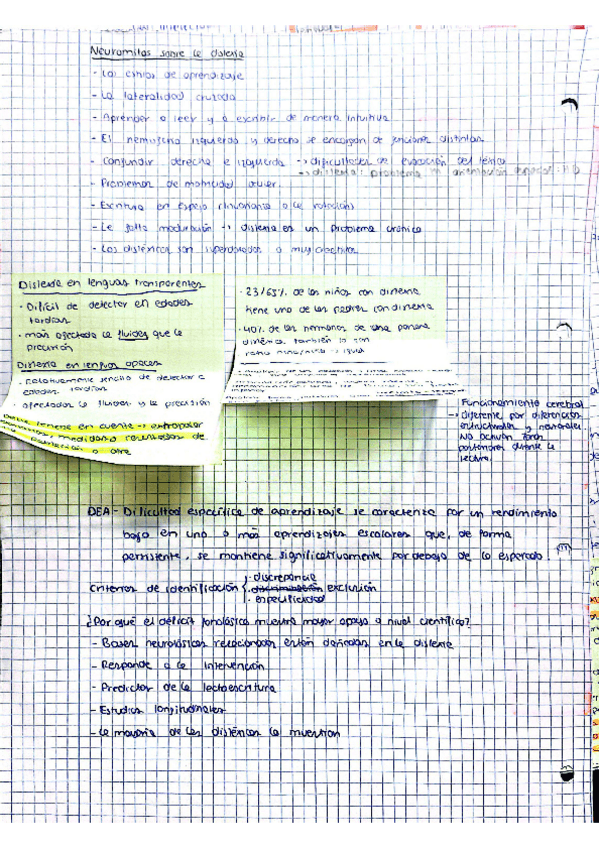 Neuromitos sobre la dislexia
- Los estilos de aprendizaje
- La lateralidad cruzada
- Aprender a leer y a escribir de manera intuitiva
- El hemisferio izquierdo y derecho se encargan de funciones distintas
- Confundir derecha e izquierda → dificultades de evocación del léxico
→ dislexia: problema orientación
- Problemas de motricidad ocular
- Escritura en espejo
- La falta maduración → dislexia es un problema crónico
- Los disléxicos son superdotados o muy creativos
Dislexia en lenguas transparentes
· Difícil de detectar en edades
tardías
· más afectada la fluidez que la
precisión
Dislexia en lenguas opacas
· relativamente sencillo de detectar a
edades tardías
· afectadas la fluidez y la precisión
tenerse en cuenta → extrapolar
resultados de
o otra
· 23/65% de los niños con dislexia
tiene uno de los padres con dislexia
· 40% de los hermanos de una persona
disléxica también lo son
- Funcionamiento cerebral
→ Diferente por diferencias
estructurales y neuronales
NO activan zonas
posteriores durante la
lectura.
DEA - Dificultad específica de aprendizaje se caracteriza por un rendimiento
bajo en uno o más aprendizajes escolares que, de forma
persistente, se mantiene significativamente por debajo de lo esperado.
· discrepancia
Criterios de identificación { · discriminación exclusión
· especificidad
¿Por qué el déficit fonológico muestra mayor apoyo a nivel científico?
- Bases neurológicas relacionadas están dañadas en la dislexia
- Responde a la intervención
- Predictor de la lectoescritura
- Estudios longitudinales
- La mayoría de los disléxicos lo muestran